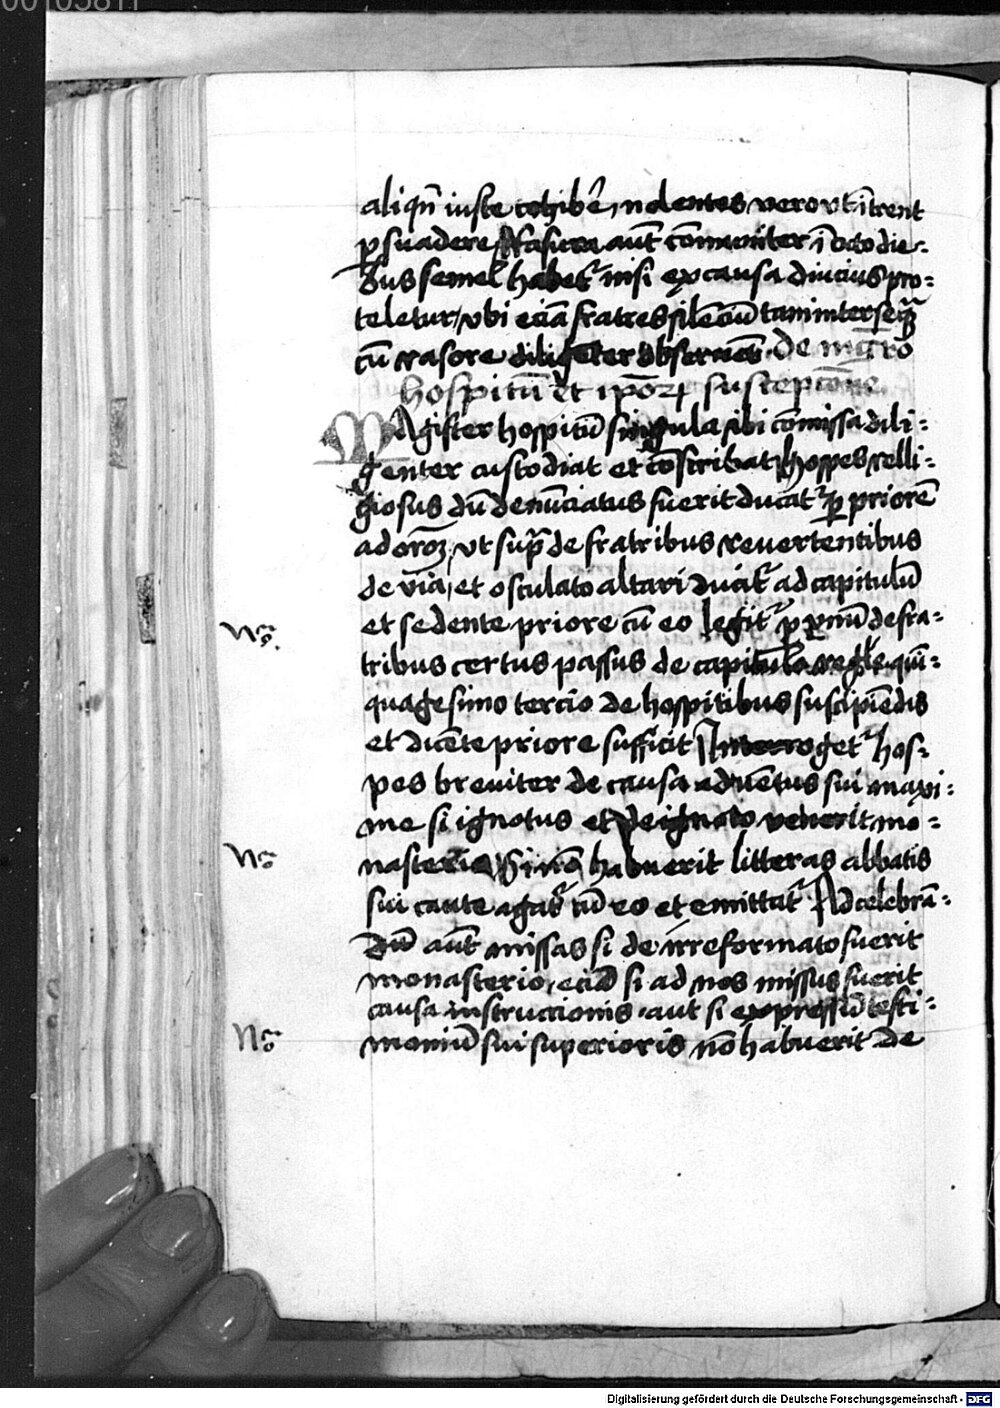 00105811
aliqñ iuste cohibẽ, nolentes vero vt ĩtrent
ꝑsuadere Rasura aũt cõmuniter ĩ octo die-
bus semel habet᷑ nisi ex causa diucius pro-
teletur, vbi eciã fratres silẽciũ tam inter se q̃
cũ rasore diligẽter obseruẽt. De mg̃ro
hospitũ et ip̃oꝝ suscepcõne
MAgister hospitũ singula sibi cõmissa dili-
genter custodiat et cõscribat, hospes relli-
giosus dũ denũciatus fuerit ducat᷑ ꝑ priorẽ
ad oroẽʒ, vt sup̃ de fratribus reuertentibus
de via, et osculato altari ducit᷑ ad capitulũ
et sedente priore cũ eo legit᷑ ꝑ vnũ de fra-
tribus certus passus de capitulo regl̃e quĩ-
quagesimo tercio de hospitibus suscipiẽdis
et dicẽte priore sufficit Interroget᷑ hos-
pes breuiter de causa aduẽtus sui maxi-
me si ignotus et de ignoto venerit mo-
nasterio, Si nõ habuerit litteras abbatis
sui caute agat᷑ cũ eo et emittat᷑ Ad celebrã-
dũ aũt missas si de irreformato fuerit
monasterio, eciã si ad nos missus fuerit
causa instruccionis aut si expressũ testi-
moniũ sui superioris nõ habuerit de
Digitalisierung gefördert durch die Deutsche Forschungsgemeinschaft - DFG